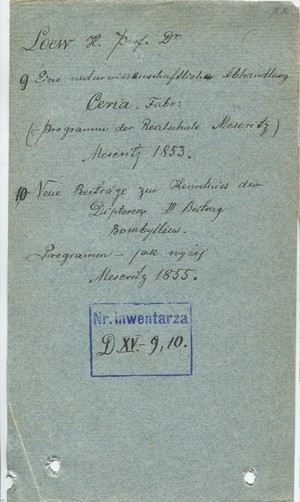 Loew H. Prof. Dr
9 Eine naturwissenschaftliche Abhandlung
Ceria, Fabr:
(-programm der Realschule Meseritz)
Meseritz 1853.
10 Neue Beiträge zur Kenntniss der
Dipteren III Beitrag
Bombylius.
Programm - jak wyżej
Meseritz 1855.
Nr. inwentarza
D XV.- 9, 10.